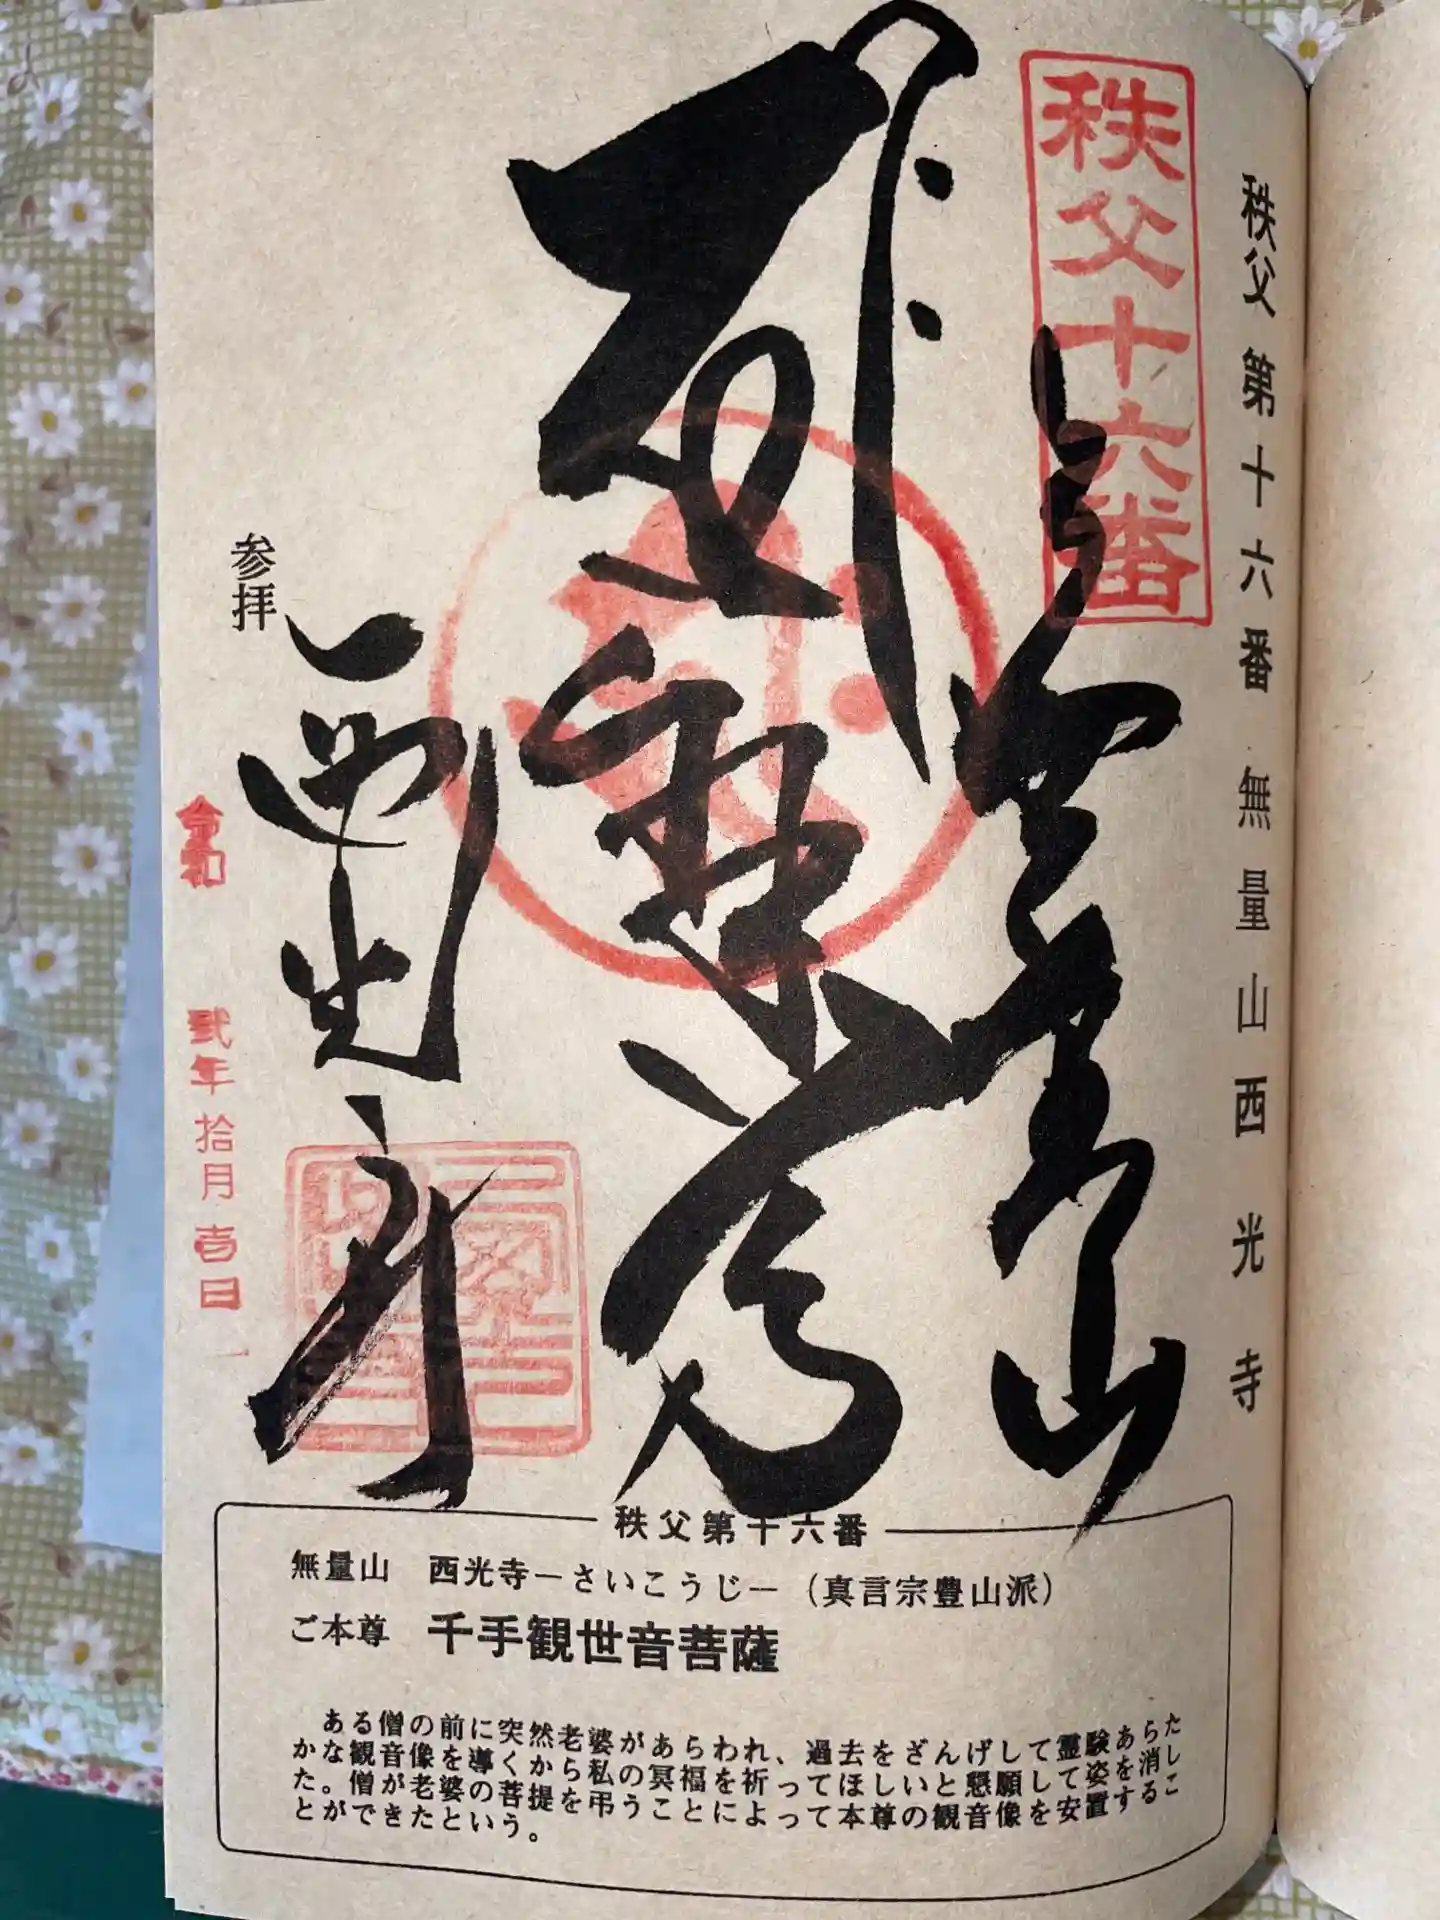 秩父第十六番 無量山西光寺
秩父十六番
無量山
参拝
西光寺
令和 弐年 拾月 壱日
秩父第十六番
無量山 西光寺―さいこうじ―（真言宗豊山派）
ご本尊 千手観世音菩薩
ある僧の前に突然老婆があらわれ、過去をざんげして霊験あらた
かな観音像を導くから私の冥福を祈ってほしいと懇願して姿を消し
た。僧が老婆の菩提を弔うことによって本尊の観音像を安置するこ
とができたという。